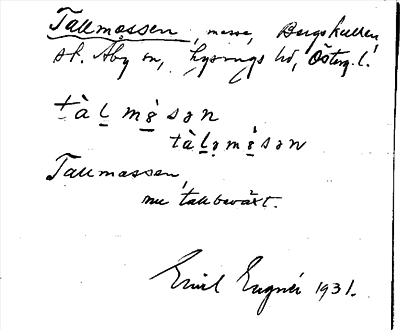 Tallmossen, mosse, Bergskullen,
sk. Åby sn, Lysings hd, Österg. l.
tàl̥ mò̥sən
tàl̥əmò̥sən
Tallmossen,
nu tallbeväxt.
Emil Eugnér 1931.